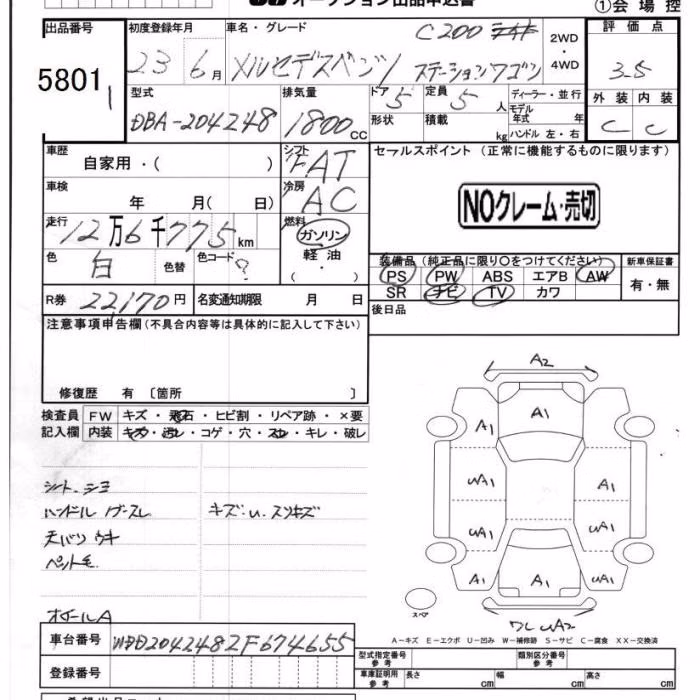 オークション出品申込書
①会場控
出品番号 5801
初度登録年月 23 6月
車名・グレード C200
メルセデスベンツ ステーションワゴン
2WD・4WD
評価点 3.5
外装 内装
C C
型式 DBA-204248
排気量 1800cc
ドア 5
定員 5人
ディーラー・並行
モデル年式 年
形状 積載 kg ハンドル 左・右
車歴 自家用・( )
シフト FAT
セールスポイント (正常に機能するものに限ります)
車検 年 月( 日)
冷房 AC
NOクレーム・売切
走行 12万6千775km
燃料 ガソリン
軽油
・( )
色 白 色替 色コード ?
装備品(純正品に限り○をつけてください)
新車保証書
PS PW ABS エアB AW
有・無
SR ナビ TV カワ
R券 22170円
名変通知期限 月 日
後日品
注意事項申告欄(不具合内容等は具体的に記入して下さい)
修復歴 有 〔箇所 〕
検査員 FW キズ・飛石・ヒビ割・リペア跡・×要
記入欄 内装 キズ・汚レ・コゲ・穴・スレ・キレ・破レ
シート、シミ
ハンドル
キズ・U、スリキズ
天バリ ウキ
ペット毛
ホイールA
A2
A1 A1
UA1 A1
UA1 UA1
A1 A1 UA1
スペア
ワレ UA2
A-キズ E-エクボ U-凹み W-補修跡 S-サビ C-腐食 XX-交換済
車台番号 WDD2042482F674655
型式指定番号 参考
類別区分番号 参考
登録番号
車庫証明用 参考 長さ cm 幅 cm 高さ cm